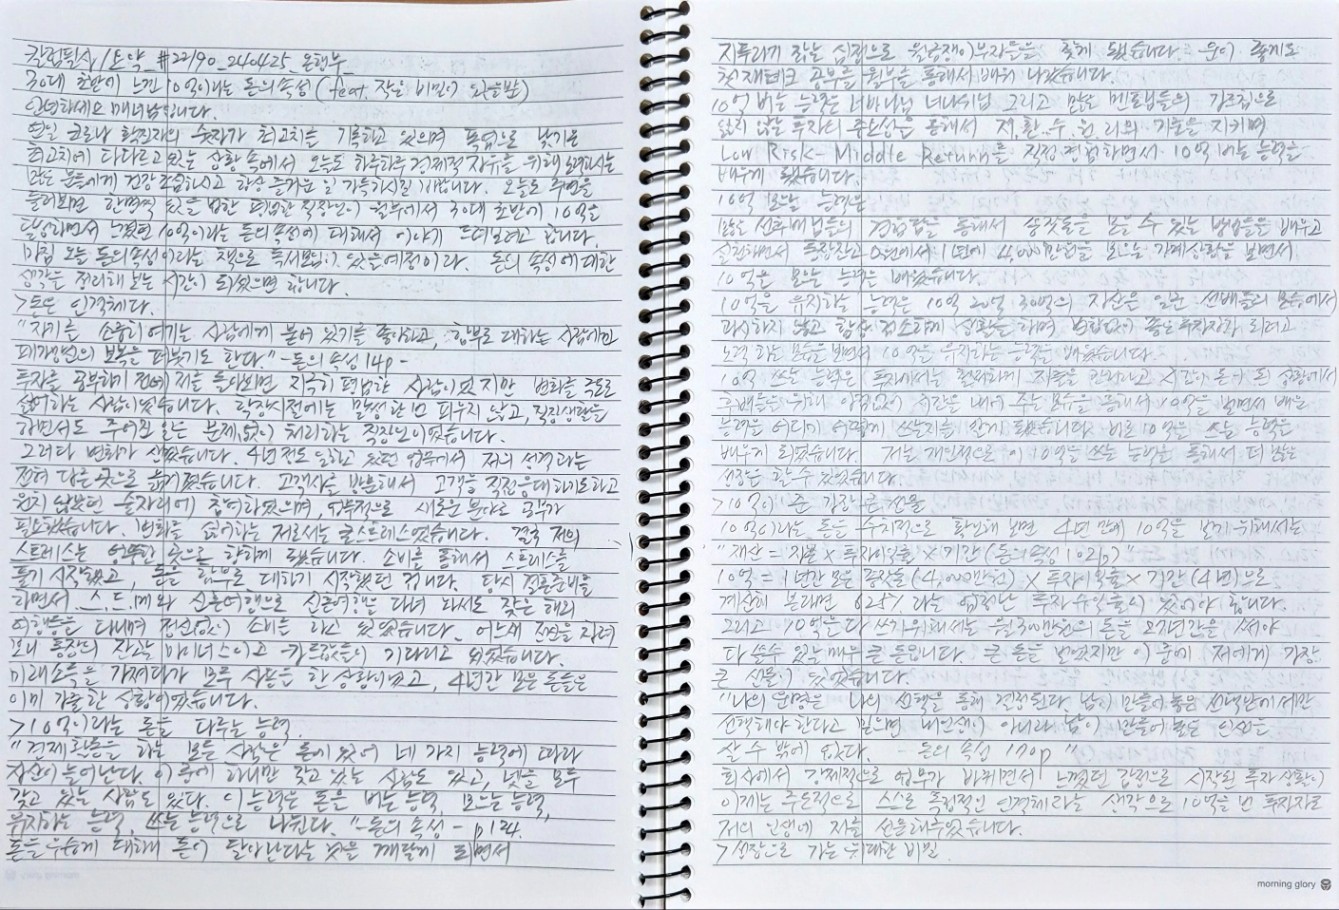 칼럼필사/요약_#22/90_240425_은행부_
30대 초반에 느낀 10억이라는 돈의 속성 (feat. 작은 비밀이 있을뿐)
안녕하세요 입니다.
연일 코로나 확진자의 숫자가 최고치를 기록하고 있으며 폭염으로 낮기온
최고치에 다다르고 있는 상황 속에서 오늘도 하루하루 경제적 자유를 위해 노력하시는
많은 분들에게 건강 조심하시고 항상 즐거운 일 가득하시길 바랍니다. 오늘도 주변을
둘러보면 한번쯤 있을 법한 평범한 직장인이 월부에서 30대 초반에 10억을
달성하면서 느꼈던 10억이라는 돈의 속성에 대해서 이야기 드려보려고 합니다.
마침 오늘 돈의 속성이라는 책으로 독서모임이 있을 예정이라. 돈의 속성에 대한
생각을 정리해 보는 시간이 되었으면 합니다.
>돈은 인격체다.
"자기를 소중히 여기는 사람에게 붙어 있기를 좋아하고, 함부로 대하는 사람에겐
패가망신의 보복을 퍼붓기도 한다." -돈의 속성 14p-
투자를 공부하기 전에 저를 돌아보면 지극히 평범한 사람이었지만 변화를 극도로
싫어하는 사람이었습니다. 학창시절에는 말썽 한번 피우지 않고, 직장생활을
하면서도 주어진 일은 문제없이 처리하는 직장인이었습니다.
그러다 변화가 생겼습니다. 4년 정도 일하고 있던 업무에서 저의 성격과는
전혀 다른 곳으로 옮기게 됐습니다. 고객사를 방문해서 고객을 직접 응대하기도 하고
원치 않았던 술자리에 참여하였으며, 업무적으로 새로운 분야로 공부가
필요했습니다. 변화를 싫어하는 저로서는 큰 스트레스였습니다. 결국 저의
스트레스는 엉뚱한 곳으로 향하게 됐습니다. 소비를 통해서 스트레스를
풀기 시작했고, 돈을 함부로 대하기 시작했던 겁니다. 당시 결혼준비를
하면서 스.드.메와 신혼여행으로 신혼여행은 다녀 와서도 잦은 해외
여행등을 다니며 정신없이 소비를 하고 있었습니다. 어느새 정신을 차려
보니 통장의 잔고는 마이너스이고 카드값들이 기다리고 있었습니다.
미래소득을 가져다가 모두 사용을 한 상황이었고, 4년간 모은 돈들은
이미 가출한 상황이었습니다.
>10억이라는 돈을 다루는 능력.
"경제활동을 하는 모든 사람은 돈에 있어 네 가지 능력에 따라
자산이 늘어난다. 이 중에 하나만 갖고 있는 사람도 있고, 넷을 모두
갖고 있는 사람도 있다. 이 능력은 돈을 버는 능력, 모으는 능력,
유지하는 능력, 쓰는 능력으로 나뉜다." -돈의 속성- p124.
돈을 우습게 대해 돈이 달아난다는 것을 깨닫게 되면서
지푸라기 잡는 심정으로 월급쟁이부자들을 찾게 됐습니다. 운이 좋게도
첫 재테크 공부를 월부를 통해서 배워 나갔습니다.
10억 버는 능력은 너바나님 너나위님 그리고 많은 멘토님들의 가르침으로
잃지 않는 투자의 중요성을 통해서 저.환.수.원.리의 기준을 지키며
Low Risk- Middle Return를 직접 경험하면서 10억 버는 능력을
배우게 됐습니다.
10억 모으는 능력은
많은 선후배님들의 경험담을 통해서 종잣돈을 모을 수 있는 방법들을 배우고
실천해면서 통장잔고 0원에서 1년에 4,000만원을 모으는 가계상황을 보면서
10억은 모으는 능력을 배웠습니다.
10억을 유지하는 능력은 10억 20억 30억의 자산을 일군 선배들의 모습에서
과시하지 않고 항상 검소하게 생활을 하며 변함없이 좋은 투자자가 되려고
노력 하는 모습을 보면서 10억을 유지하는 능력을 배웠습니다.
10억 쓰는 능력은 투자에서는 철저하게 지출을 관리하고 시간이 돈이 된 상황에서
후배들을 위해 아낌없이 시간을 내어 주는 모습을 통해서 10억을 벌면서 배운
능력은 어디에 어떻게 쓰는지를 알게 됐습니다. 바로 10억을 쓰는 능력을
배우게 되었습니다. 저는 개인적으로 이 10억을 쓰는 능력을 통해서 더 많은
성장을 할 수 있었습니다.
>10억이 준 값진 큰 선물
10억이라는 돈을 수치적으로 확인해 보면 4년 만에 10억을 벌기 위해서는
"재산 = 자본 × 투자이익률 × 기간 (돈의 속성 102p)"
10억 = 1년간 모은 종잣돈 (4,000만원) × 투자이익률 × 기간 (4년)으로
계산해 본다면 625% 라는 엄청난 투자 수익률이 있어야 합니다.
그리고 10억을 다 쓰기 위해서는 월 300만원의 돈을 27년간을 써야
다 쓸수 있는 매우 큰 돈입니다. 큰 돈을 벌었지만 이 중에 저에게 가장
큰 선물이 있었습니다.
"나의 운명은 나의 선택을 통해 결정된다. 남이 만들어 놓은 선택안에서만
선택해야 한다고 믿으면 내 인생이 아니라 남이 만들어 놓은 인생을
살 수 밖에 없다. - 돈의 속성 170p"
회사에서 강제적으로 업무가 바뀌면서 느꼈던 감정으로 시작된 투자 생활이
이제는 주도적으로 스스로 독립적인 인격체라는 생각으로 10억을 번 투자자로
저의 인생에 저를 선물해주었습니다.
>성장으로 가는 위대한 비밀
morning glory